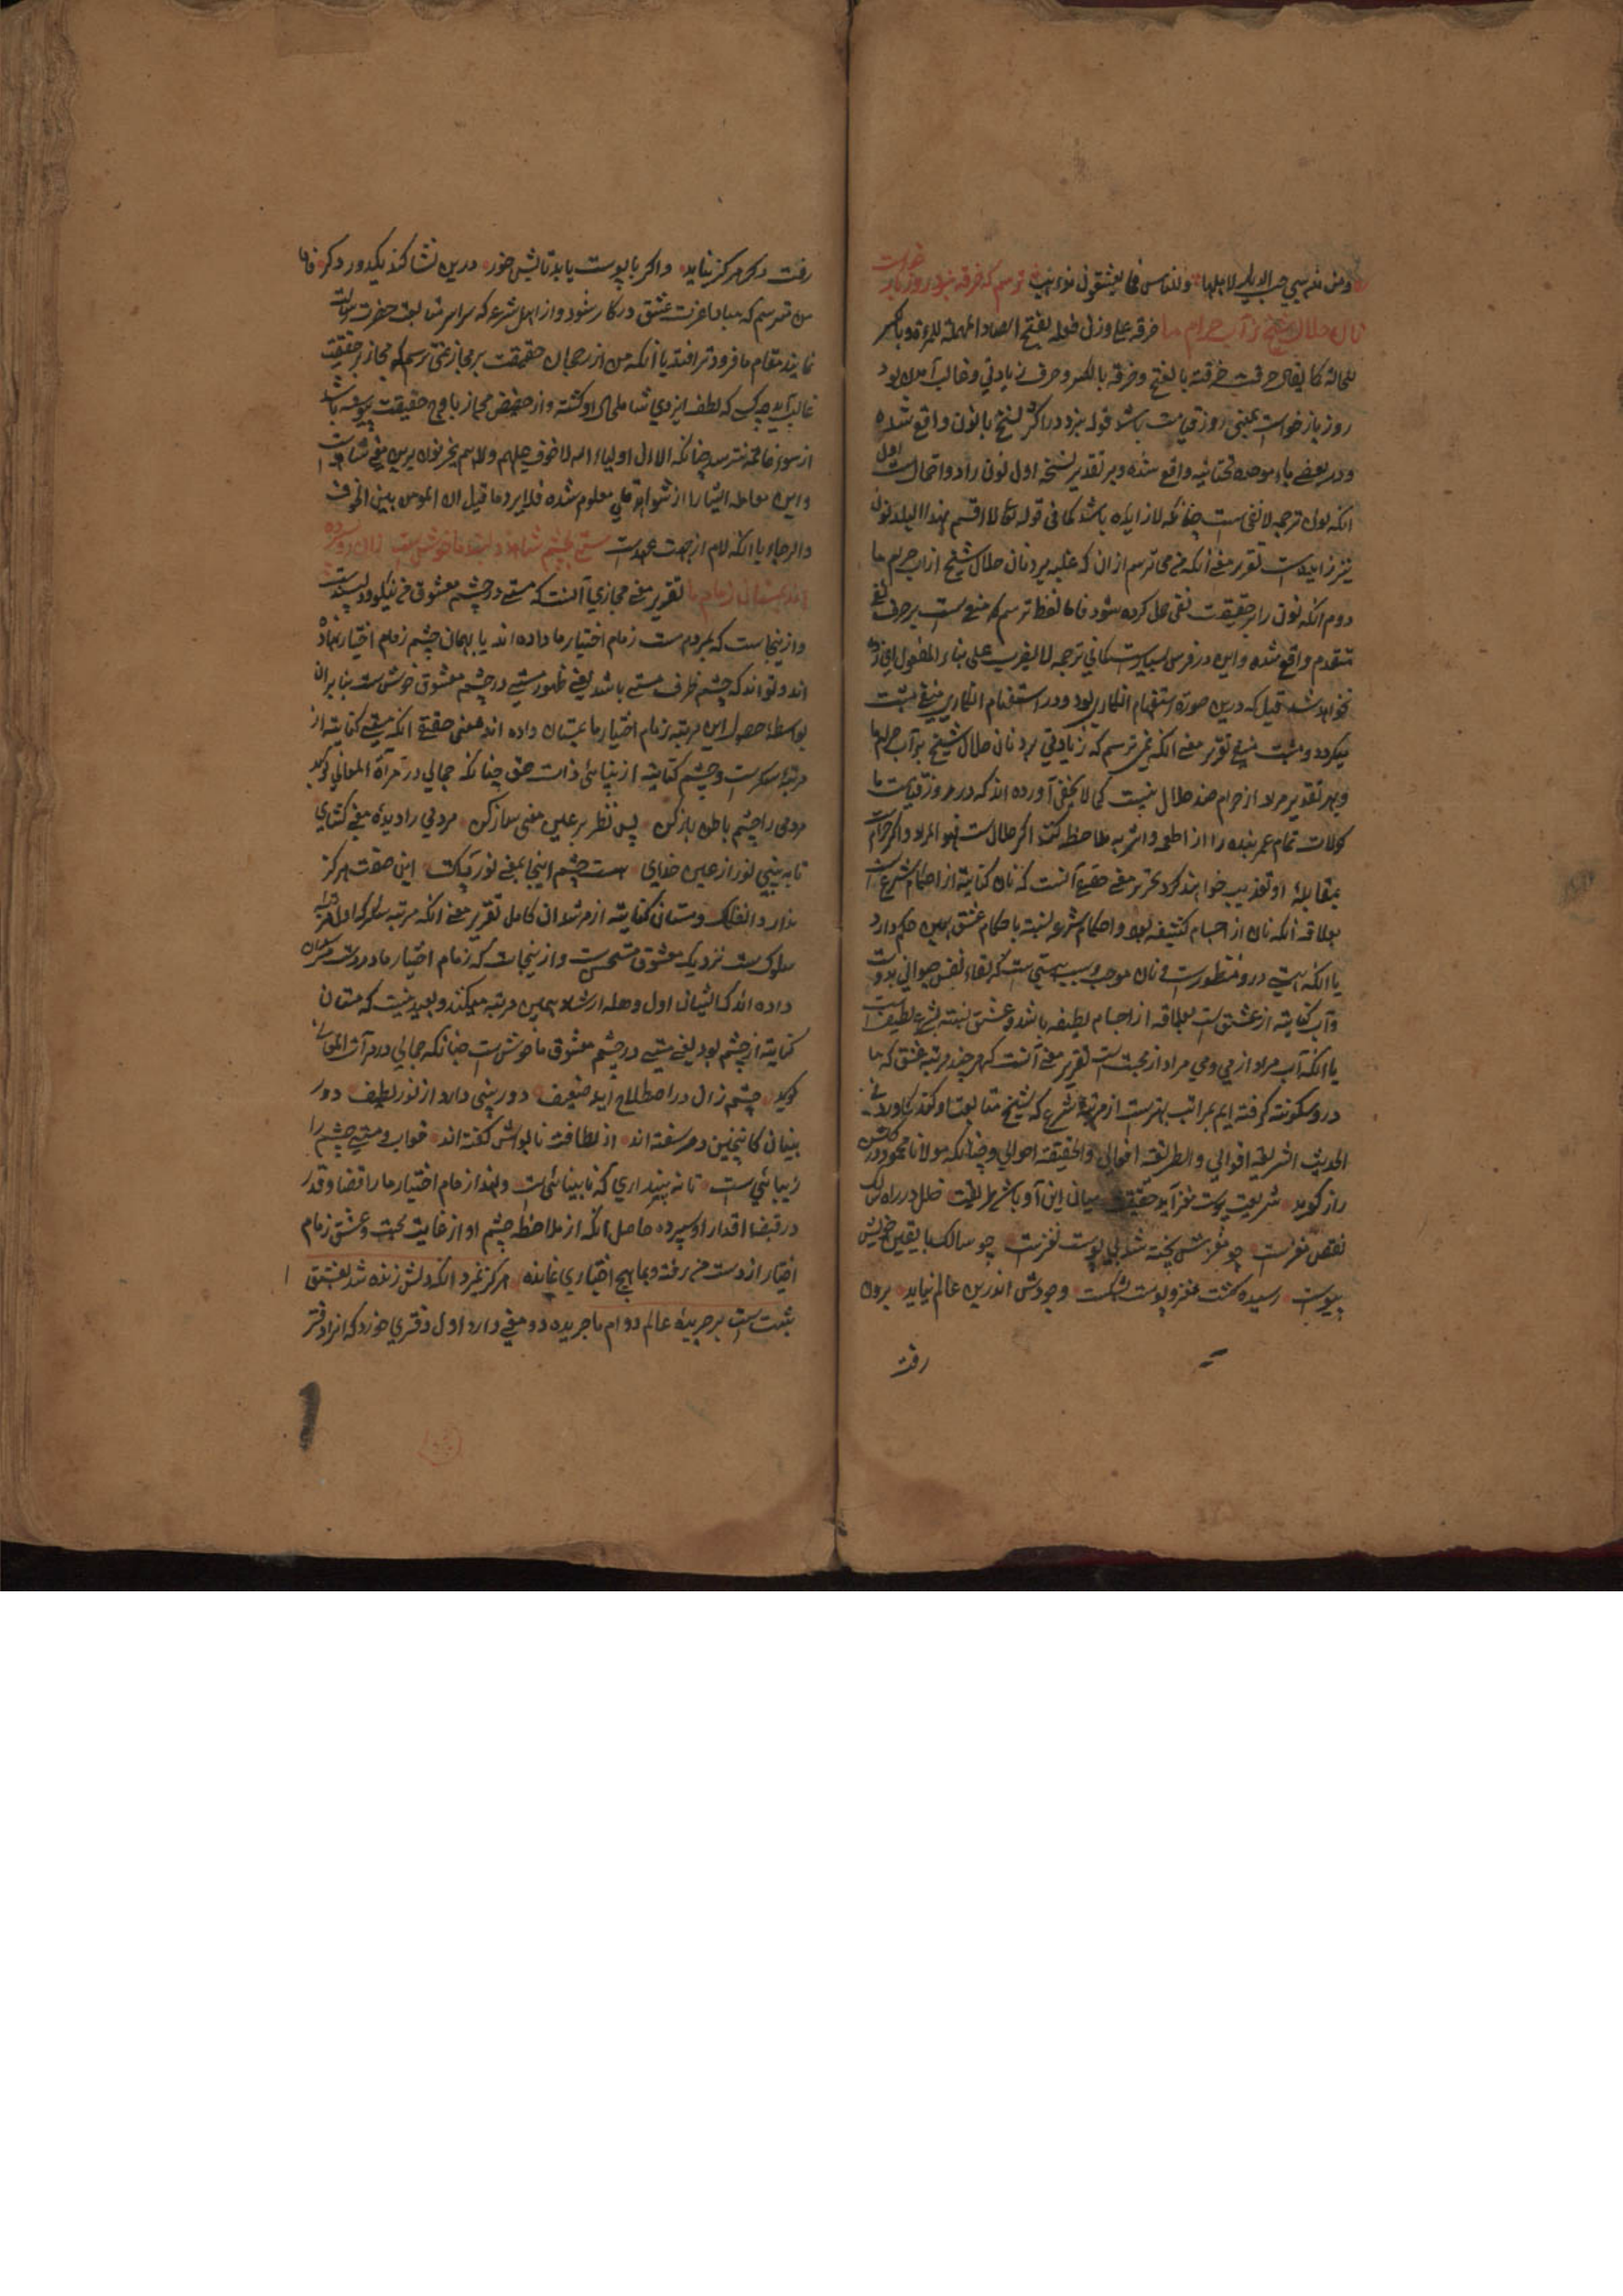 ومن مذهبي حب الديار لاهلها وللناس فيما يعشقون مذاهب ترسم که صرفه نبرد روز باز خواست
نان حلال شیخ ز آب حرام ما صرفه علی وزن فعله بفتح الصاد المهملة للمرة وبالكسر
للحالة کما یقال حرفت حرفة بالفتح وحرفة بالکسر وصرف زیادتی وغالب آمدن بود
روز باز خواست بمعنی روز قیامت باشد قوله نبرد در اکثر نسخ بانون واقع شده
ودر بعضی باء موحده تحتانیه واقع شده وبر تقدیر نسخه اول نون را دو احتمال است اول
انکه نون ترجمه لا نفی است چنانکه لا زایده باشد کما فی قوله تعالی لا اقسم بهذا البلد نون
نیز زایده است تقریر معنی انکه می ترسم ازان که غلبه برد نان حلال شیخ از آب حرام ما
دوم انکه نون را بر حقیقت نفی حمل کرده شود فاما لفظ ترسم که منفی است بر حرف نفی
متقدم واقع شده واین در فرس بسیار است
نخواهد شد قیل که درین صورة استفهام انکاری بود ودر استفهام انکاری منفی مثبت
میکردد ومثبت منفی تقریر معنی انکه نمی ترسم که زیادتی برد نان حلال شیخ بر آب حرام ما
وبهر تقدیر مراد از حرام ضد حلال نیست کما لا یخفی آورده اند که در روز قیامت ما
کولات تمام عمر بنده را از اطعمه واشربه ملاحظه کنند اکر حلال است فهو المراد واکر حرام است
بمقابله او تعذیب خواهند کرد تحریر معنی حقیقی آنست که نان کنایة از احکام شرع است
بعلاقه انکه نان از اجسام کثیفه بود واحکام شرع نسبة باحکام عشق همین حکم دارد
یا انکه هستی درو منظور است ونان موجب وسبب هستی است که بقاء نفس حیوانی بدوست
وآب کنایة از عشق است بعلاقه از اجسام لطیفه باشد وعشق نسبة بشرع لطیف است
یا انکه آب مراد از می ومی مراد از محبت است تقریر معنی آنست که هر چند مرتبه عشق که ما
درو سکونت کرفته ایم بمراتب بهتر است از مرتبه شرع که شیخ متابعت او کند کما ورد فی
الحدیث الشریعة اقوالی والطریقة افعالی والحقیقة احوالی وچنانکه مولانا محمود در کلشن
راز کوید شریعت پوست مغز آید حقیقت میان این و آن باشد طریقت خلل در راه سالک
نقص مغز است چو مغزش پخته شد بی پوست نغز است چو سالک با یقین خویش
پیوست رسیده کشت مغز وپوست بشکست وجودش اندرین عالم نیاید برون
رفت
رفت دکر هرکز نیاید واکر با پوست یابد تابش خور درین نشا کند یکدور دیکر فاما
من ترسم که مبادا عزت عشق در کار شود واز اهل شرع که سراسر متابعت حضرت رسالت
نمایند مقام ما فروتر افتد یا انکه من از رجحان حقیقت بر مجاز نمی ترسم که مجاز بر حقیقت
غالب آید چرا که لطف ایزدی شامل حال او کشته واز حضیض مجاز باوج حقیقت پیوسته باشد
از سوء خاتمه نترسد چنانکه الا ان اولیاء الله لا خوف علیهم ولا هم یحزنون برین معنی شاهد است
واین معامله ایشانرا از شواهد معلوم شده فلا یرد ما قیل ان المومن بین الخوف
والرجاء یا انکه لام از جهت عهد است مستی بچشم شاهد دلبند ما خوش است زان رو سپرده
اند بمستان زمام ما تقریر معنی مجازی آنست که مستی در چشم معشوق من نیکو ودلپسند است
وازینجاست که بمردم مست زمام اختیار ما داده اند یا بهمان چشم زمام اختیار نهاده
اند وتواند که چشم ظرف مستی باشد یعنی ظهور مستی در چشم معشوق خوش است بنا بران
بواسطه حصول این مرتبه زمام اختیار ما بمستان داده اند معنی حقیقی انکه مستی کنایة از
مرتبه سکر است وچشم کنایة از بینائی ذات حق چنانکه جمالی در مرآة المعانی کوید
مردمی را چشم باطن باز کن پس نظر بر عین معنی ساز کن مردمی را دیده معنی کشای
تا به بینی نور از عین خدای هست چشم اینجا بمعنی نور پاک این صفت هرکز
ندارد انفکاک ومستان کنایة از مرشدان کامل تقریر معنی انکه مرتبه سکر که اول مرتبه
سلوک است نزدیک معشوق مستحسن است وازینجاست که زمام اختیار ما در دست مرشدان
داده اند کایشان اول وهله ارشاد بهمین مرتبه میکنند وبعید نیست که مستان
کنایة از چشم بود یعنی مستی در چشم معشوق ما خوش است چنانکه جمالی در مرآت المعانی
کوید چشم زان در اصطلاح آید ضعیف دور بینی دارد از نور لطیف دور
بینان کاینچنین در سفته اند از لطافت ناتوانش کفته اند خواب ومستی چشم را
زیبائی است تا نه پنداری که نابینائی است ولهذا زمام اختیار ما را قضا وقدر
در قبضه اقتدار او سپرده حاصل انکه از ملاحظه چشم او از غایت محبت وعشق زمام
اختیار از دست من رفته وبما هیچ اختیاری نمانده هرکز نمیرد انکه دلش زنده شد بعشق
ثبت است بر جریده عالم دوام ما جریده دو معنی دارد اول دفتری خورد که انرا دفتر